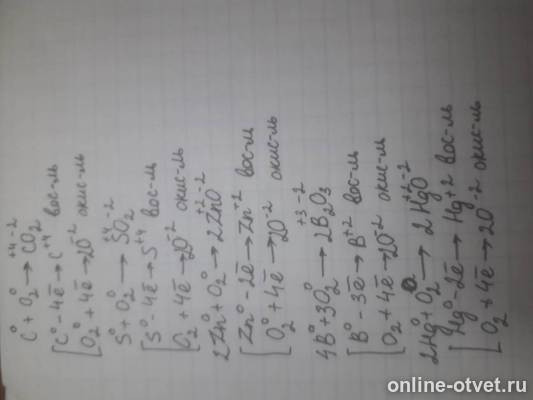 C⁰ + O₂⁰ → C⁺⁴O₂⁻²
[C⁰ - 4ē → C⁺⁴ вос-ль
[O₂⁰ + 4ē → 2O⁻² окис-ль
S⁰ + O₂⁰ → S⁺⁴O₂⁻²
[S⁰ - 4ē → S⁺⁴ вос-ль
[O₂ + 4ē → 2O⁻² окис-ль
2Zn⁰ + O₂⁰ → 2Zn⁺²O⁻²
[Zn⁰ - 2ē → Zn⁻² вос-ль
[O₂⁰ + 4ē → 2O⁻² окис-ль
4B⁰ + 3O₂⁰ → 2B₂⁺³O₃⁻²
[B⁰ - 3ē → B⁺² вос-ль
[O₂ + 4ē → 2O⁻² окис-ль
2Hg⁰ + O₂⁰ → 2Hg⁺²O⁻²
[Hg⁰ - 2ē → Hg⁺² вос-ль
[O₂⁰ + 4ē → 2O⁻² окис-ль
online-otvet.ru